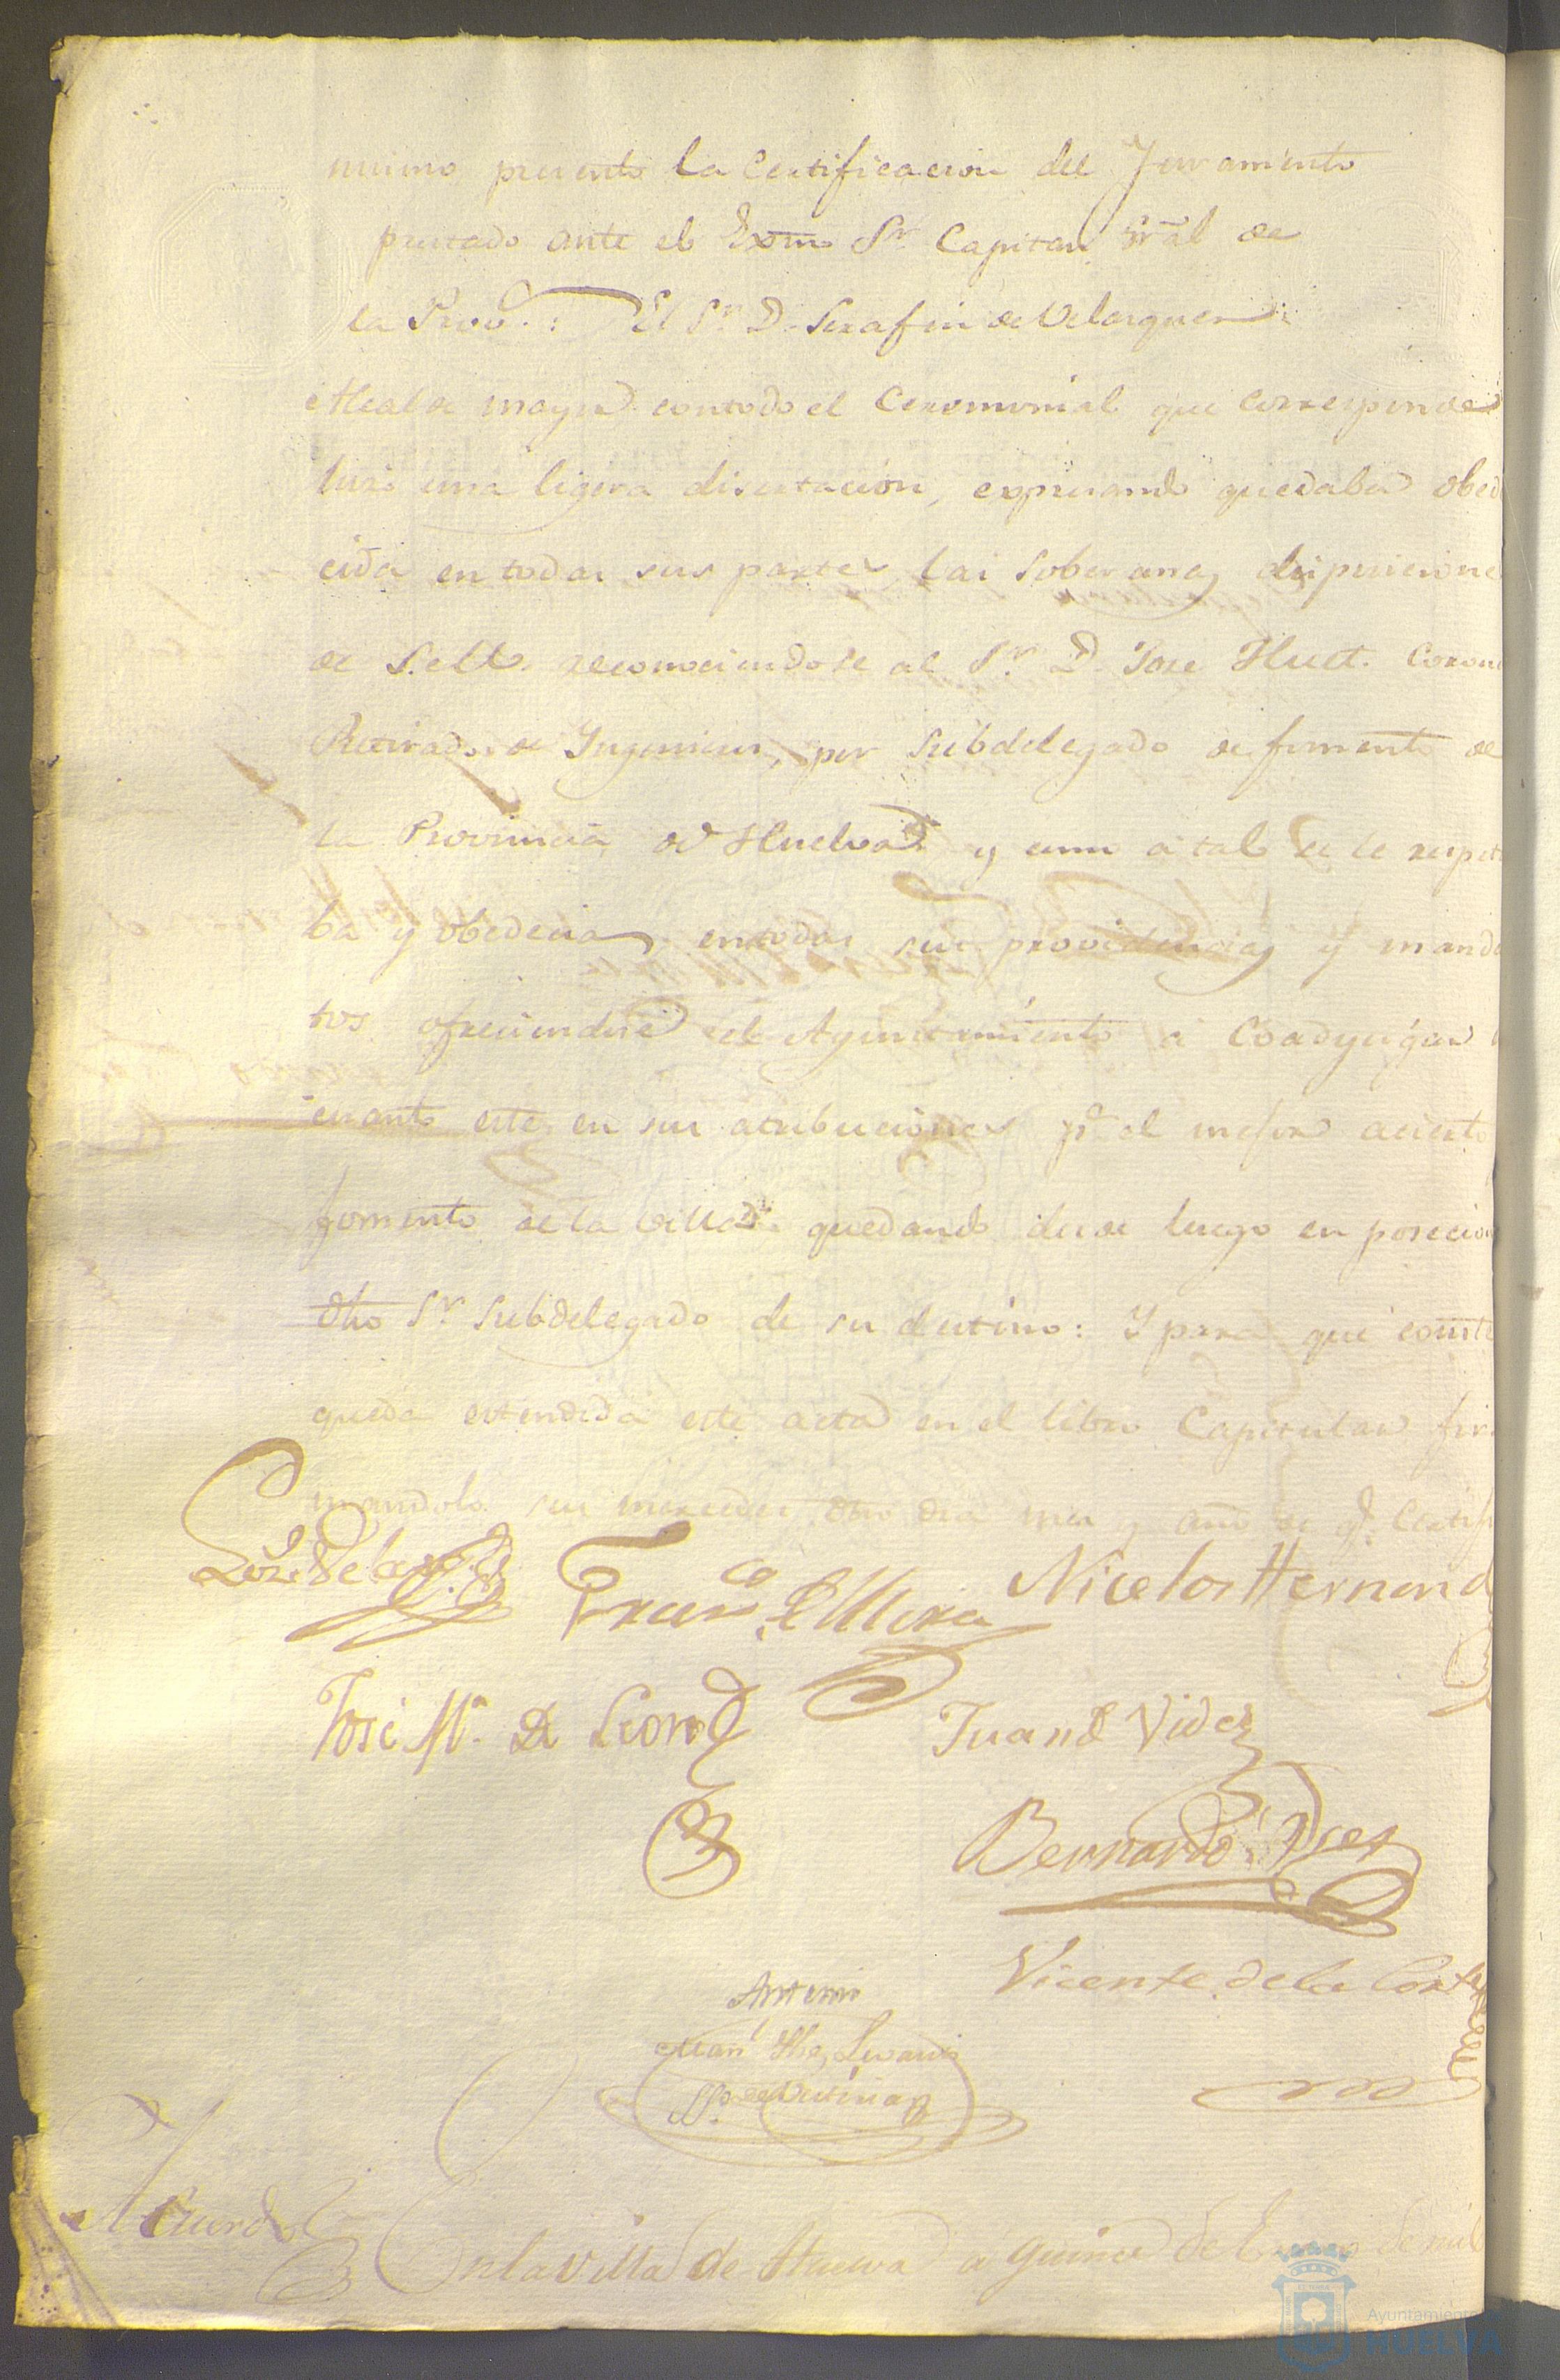 mismo presento la Certificacion del Juramento
prestado ante el Exmo Sr Capitan Gral de
la Prov.: El Sr. D. Serafin de Velazquez
Alcalde mayor con todo el Ceremonial que corresponde
hizo una ligera disertacion, expresando quedaba obede
cida en todas sus partes las soberanas disposicione
de S. M. reconociendose al Sr. D. Jose Huet. Corone
Retirado de Ingenieros, por Subdelegado de fomento de
la Provincia de Huelva y como a tal se le respeta
ba y obedecia en todas sus providencias y manda
tos ofreciendose el Ayuntamiento a Coadyugar
cuanto este en sus atribuciones pa el mejor acierto
fomento de la Villa quedando desde luego en posecion
dho Sr Subdelegado de su destino: Y para que conste
queda estendida este acta en el libro Capitular fir
mandolo sus mercedes dho dia mes y año de q. Certif
Franco. de Mora Nicolos Hernand
Jose Ma. de Leon Juan de Vides
Bernardo
Vicente de la Corte
Ante mi
Acuerdo
En la villa de Huelva a quince de Enero de mil
Ayuntamien
HUELVA